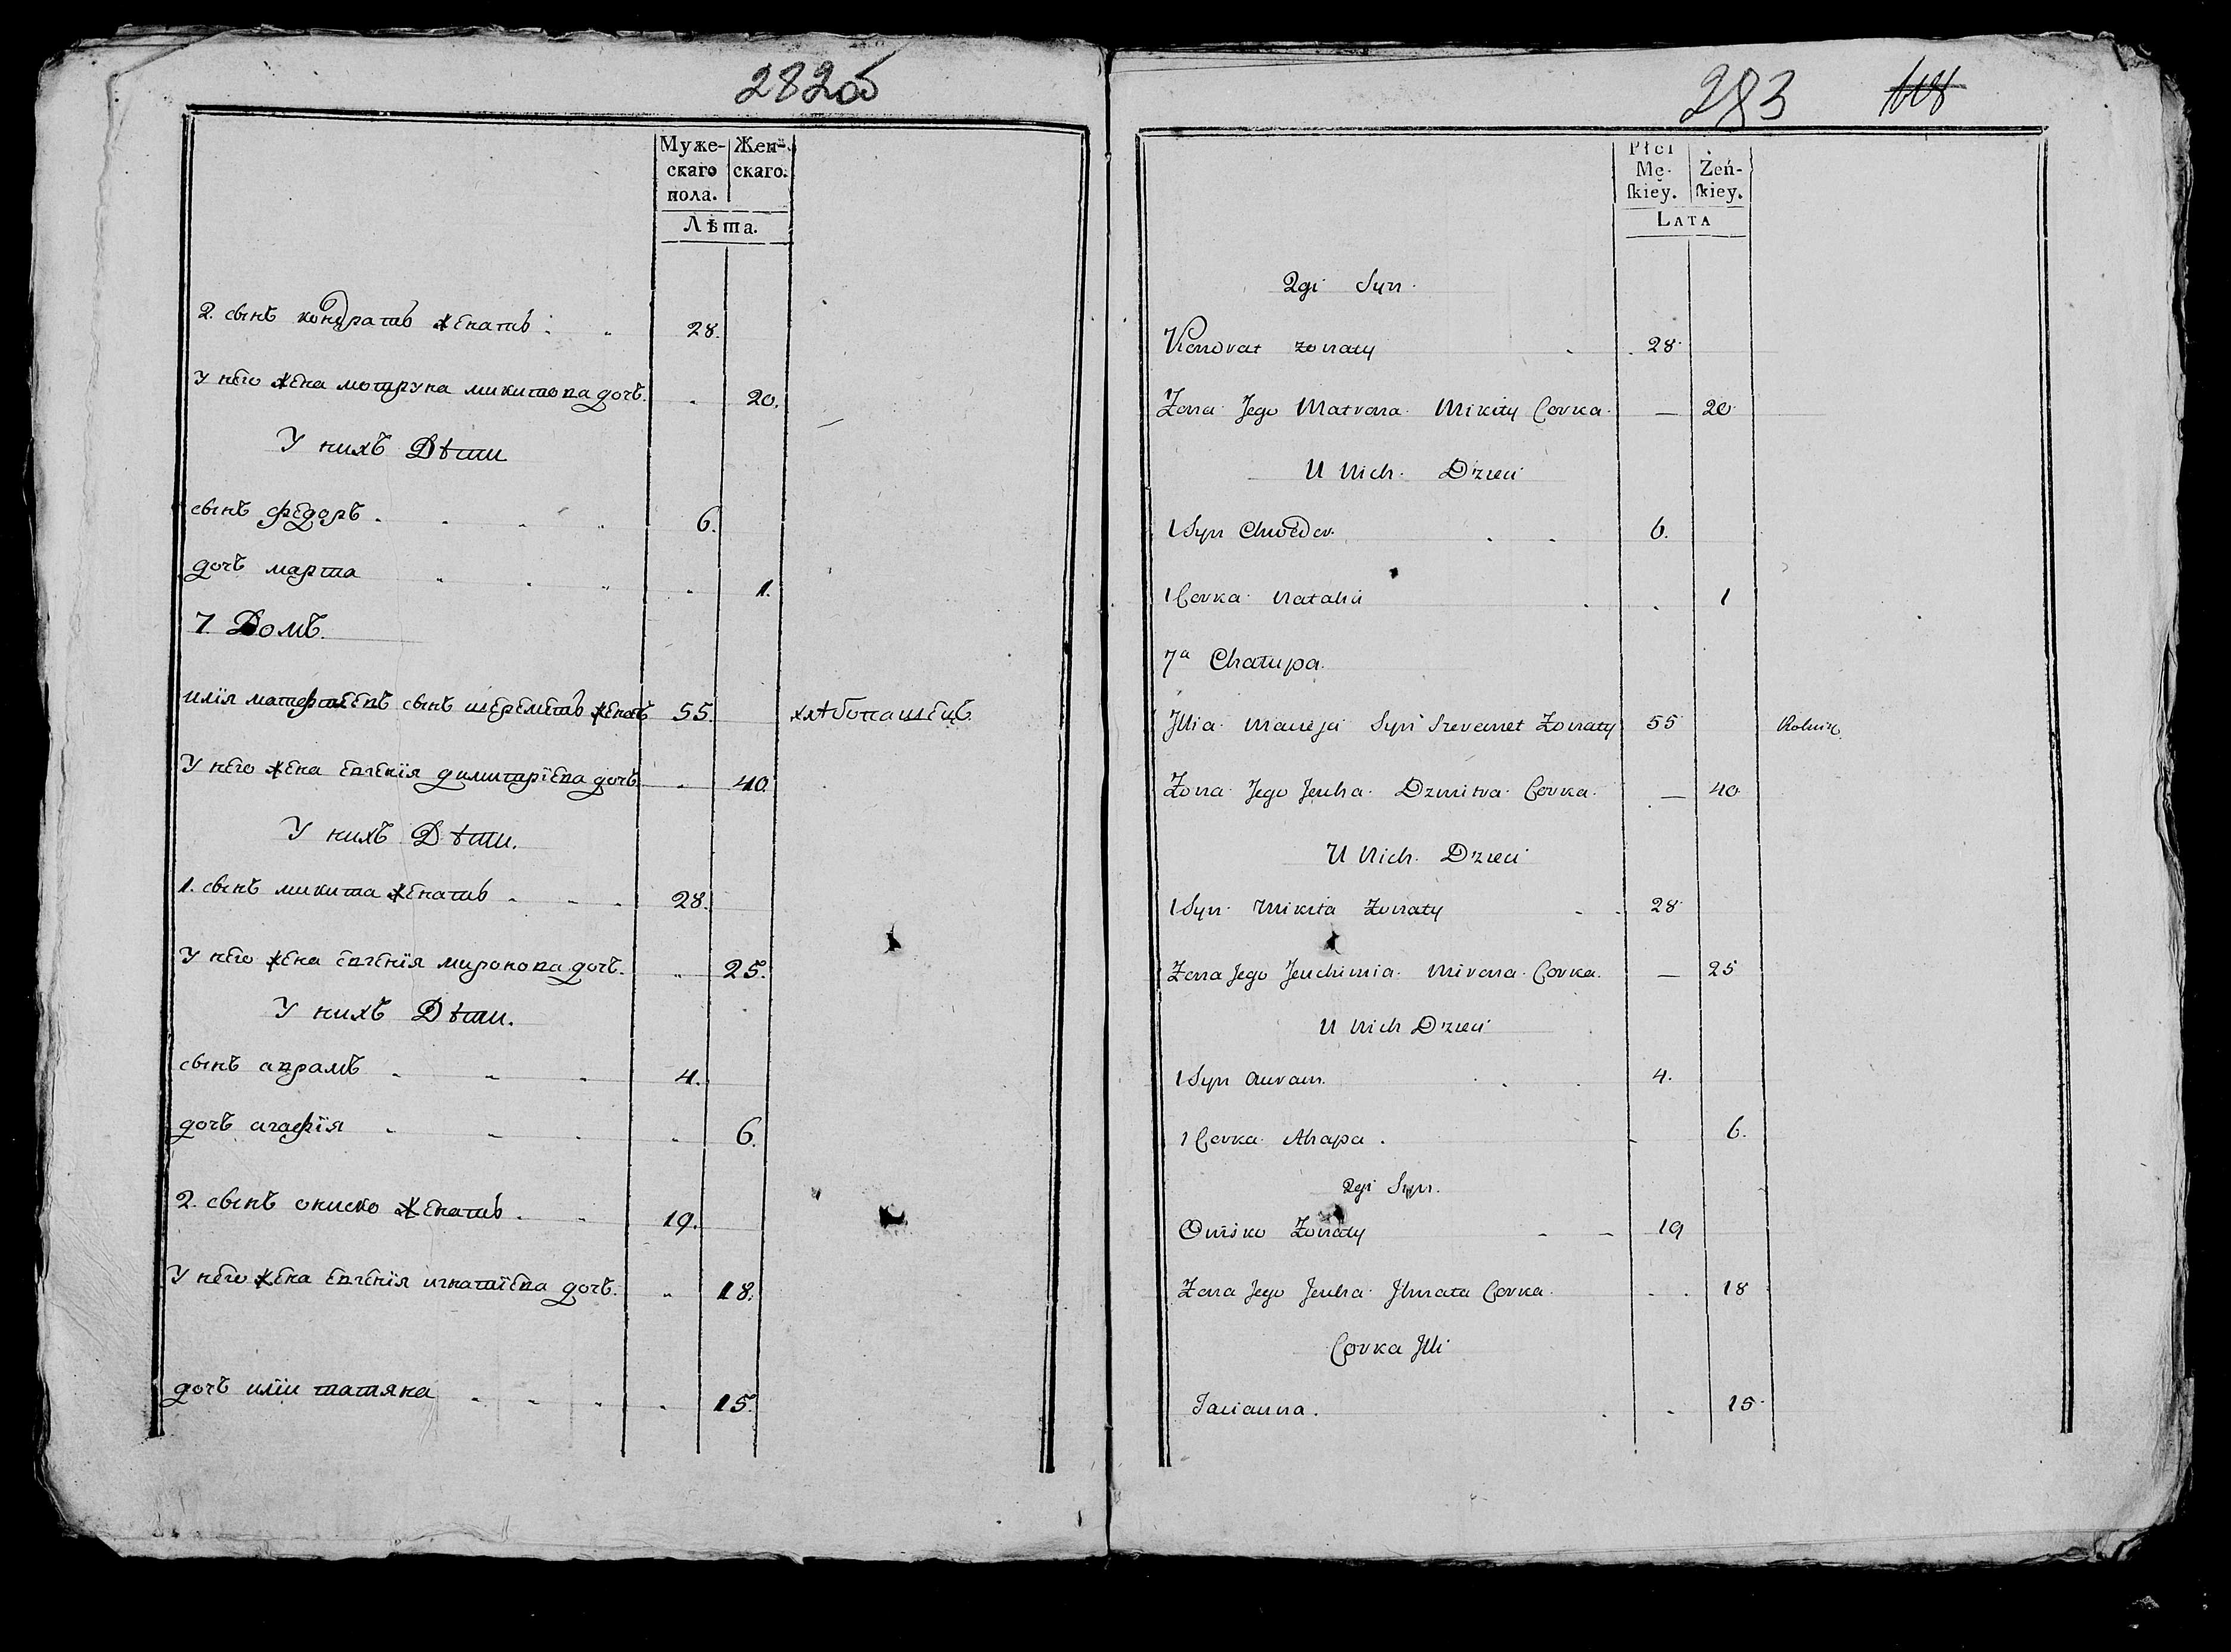 282об
Муже-
скаго
пола.
Жен-
скаго.
Лѣта.
2. сынъ кондратъ женатъ 28.
У него жена мотруна микитова дочъ. 20.
У нихъ Дѣти
сынъ федоръ 6.
дочъ марта 1.
7. Домъ.
илія матфѣевъ сынъ шереметъ женатъ 55. хлѣбопашецъ
У него жена евгенія димитріева дочъ 40.
У нихъ Дѣти.
1. сынъ микита женатъ 28.
У него жена евгенія миронова дочъ. 25.
У нихъ Дѣти.
сынъ аврамъ 4.
дочъ агафія 6.
2. сынъ ониско женатъ 19.
У него жена евгенія игнатіева дочъ. 18.
дочъ иліи татяна 15.
283
Płci
Mę-
ſkiey.
Żeń-
ſkiey.
LATA
2gi Syn
Kondrat zonaty 28
Zona Jego Matrona Mikity Corka — 20
U Nich Dzieci
1 Syn Chwedor 6.
1 Corka Natalia 1
7a Chałupa.
Jllia Macieja Syn Szeremet Zonaty 55 Rolnik
Zona Jego Jeuha Dzmitra Corka — 40
U Nich Dzieci
1 Syn Mikita Zonaty 28
Zona Jego Jeuchimia Mirona Corka — 25
U Nich Dzieci
1 Syn Auram 4.
1 Corka Ahapa 6.
2gi Syn.
Onisko Zonaty 19
Zona Jego Jeuha Jhnata Corka 18
Corka Jlli
Tacianna 15